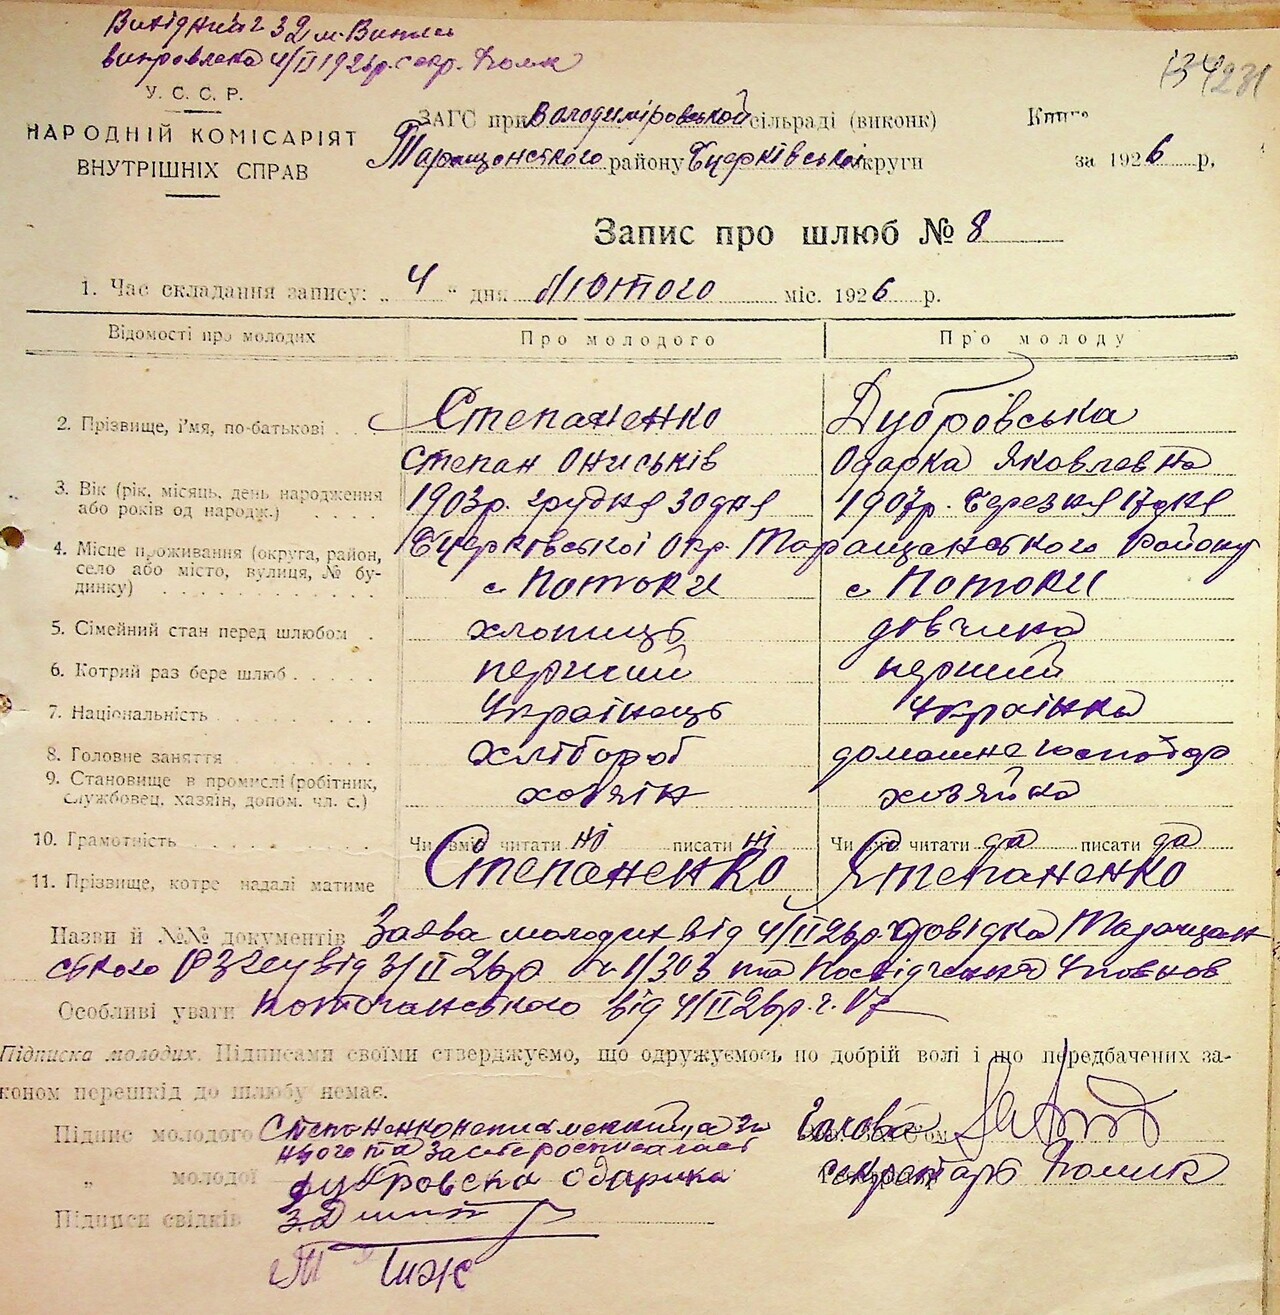 Витідний 32 м. Випис
виправлена 4/II 1926р. секр.
134 231
У. С. С. Р.
НАРОДНІЙ КОМІСАРІЯТ
ВНУТРІШНІХ СПРАВ
ЗАГС при Володиміровській сільраді (виконк)
Таращенського району Бцерківської округи
Книга
за 1926 р,
Запис про шлюб № 8
1. Час складання запису: „ 4 " дня Лютого міс. 1926 р.
Відомості про молодих Про молодого Про молоду
2. Прізвище, і'мя, по-батькові Степаненко Дубровська
СтепанОниськів Одарка Яковлевна
3. Вік (рік, місяць, день народження або років од народж.) 1903р. грудня 30 дня 1907р. Березня 17 дня
4. Місце проживання (округа, район, село або місто, вулиця, № будинку) Бцерківської Окр. Таращанського Району
с Потоки с Потоки
5. Сімейний стан перед шлюбом хлопиць дівчина
6. Котрий раз бере шлюб перший перший
7. Національність Українець Українка
8. Головне заняття хлібороб домашне господар
9. Становище в промислі (робітник, службовец, хазяін, допом. чл. с.) хозяін хозяйка
10. Грамотність Чи вміє читати ні писати ні Чи вміє читати да писати да
11. Прізвище, котре надалі матиме Степаненко Степаненко
Назви й №№ документів Заява молодих від 4/II 26р. Довідка Таращан
ського від 3/II 26р № 1/303 та Посвідчення Уповнов
Особливі уваги Поточанського від 4/II 26р. ч. 17
Підписка молодих. Підписами своїми стверджуємо, що одружуємось по добрій волі і що передбачених за-
коном перешкід до шлюбу немає.
Підпис молодого Степаненко неписьменний а за Голова
нього та за себе росписалась
„ молодої Дубровска Одарка секретарь
Підписи свідків